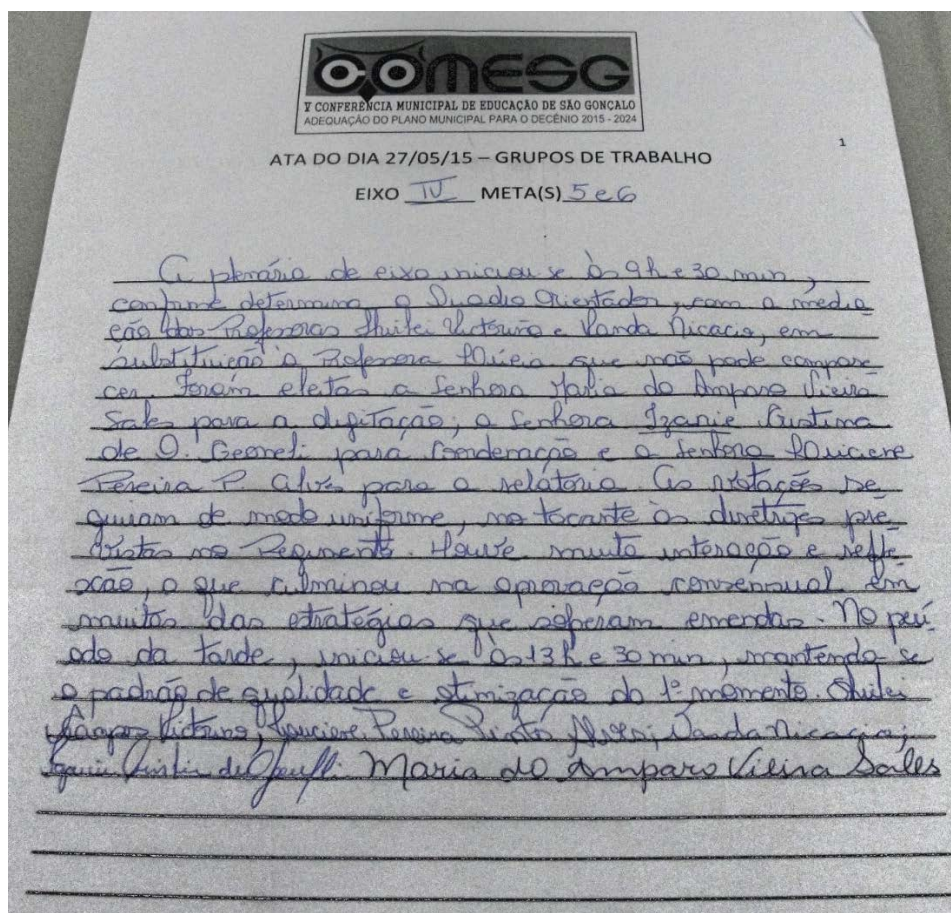 COMESG
V CONFERÊNCIA MUNICIPAL DE EDUCAÇÃO DE SÃO GONÇALO
ADEQUAÇÃO DO PLANO MUNICIPAL PARA O DECÊNIO 2015 - 2024
1
ATA DO DIA 27/05/15 – GRUPOS DE TRABALHO
EIXO IV META(S) 5 e 6
A plenária de eixo iniciou se às 9h e 30 min,
conforme determina o Quadro Orientador, com a media
ção das Professoras Shirlei Victorino e Vanda Nicacio, em
substituição a Professora que não pode compare
cer. Foram eleitas a Senhora Maria do Amparo Vieira
Sales para a digitação; a Senhora Izanie Cristina
de O. para Coordenação e a Senhora Luciene
Pereira P. Alves para a relatoria. As votações se
guiram de modo uniforme, no tocante às diretrizes pre
vistas no Regimento. Houve muita interação e refle
xão, o que culminou na aprovação consensual em
muitas das estratégias que sofreram emendas. No perí
odo da tarde, iniciou-se às 13h e 30 min, mantendo se
o padrão de qualidade e otimização do 1º momento. Shirlei
Campos Victorino, Luciene Pereira Pinto Alves; Vanda Nicacio;
Maria do Amparo Vieira Sales